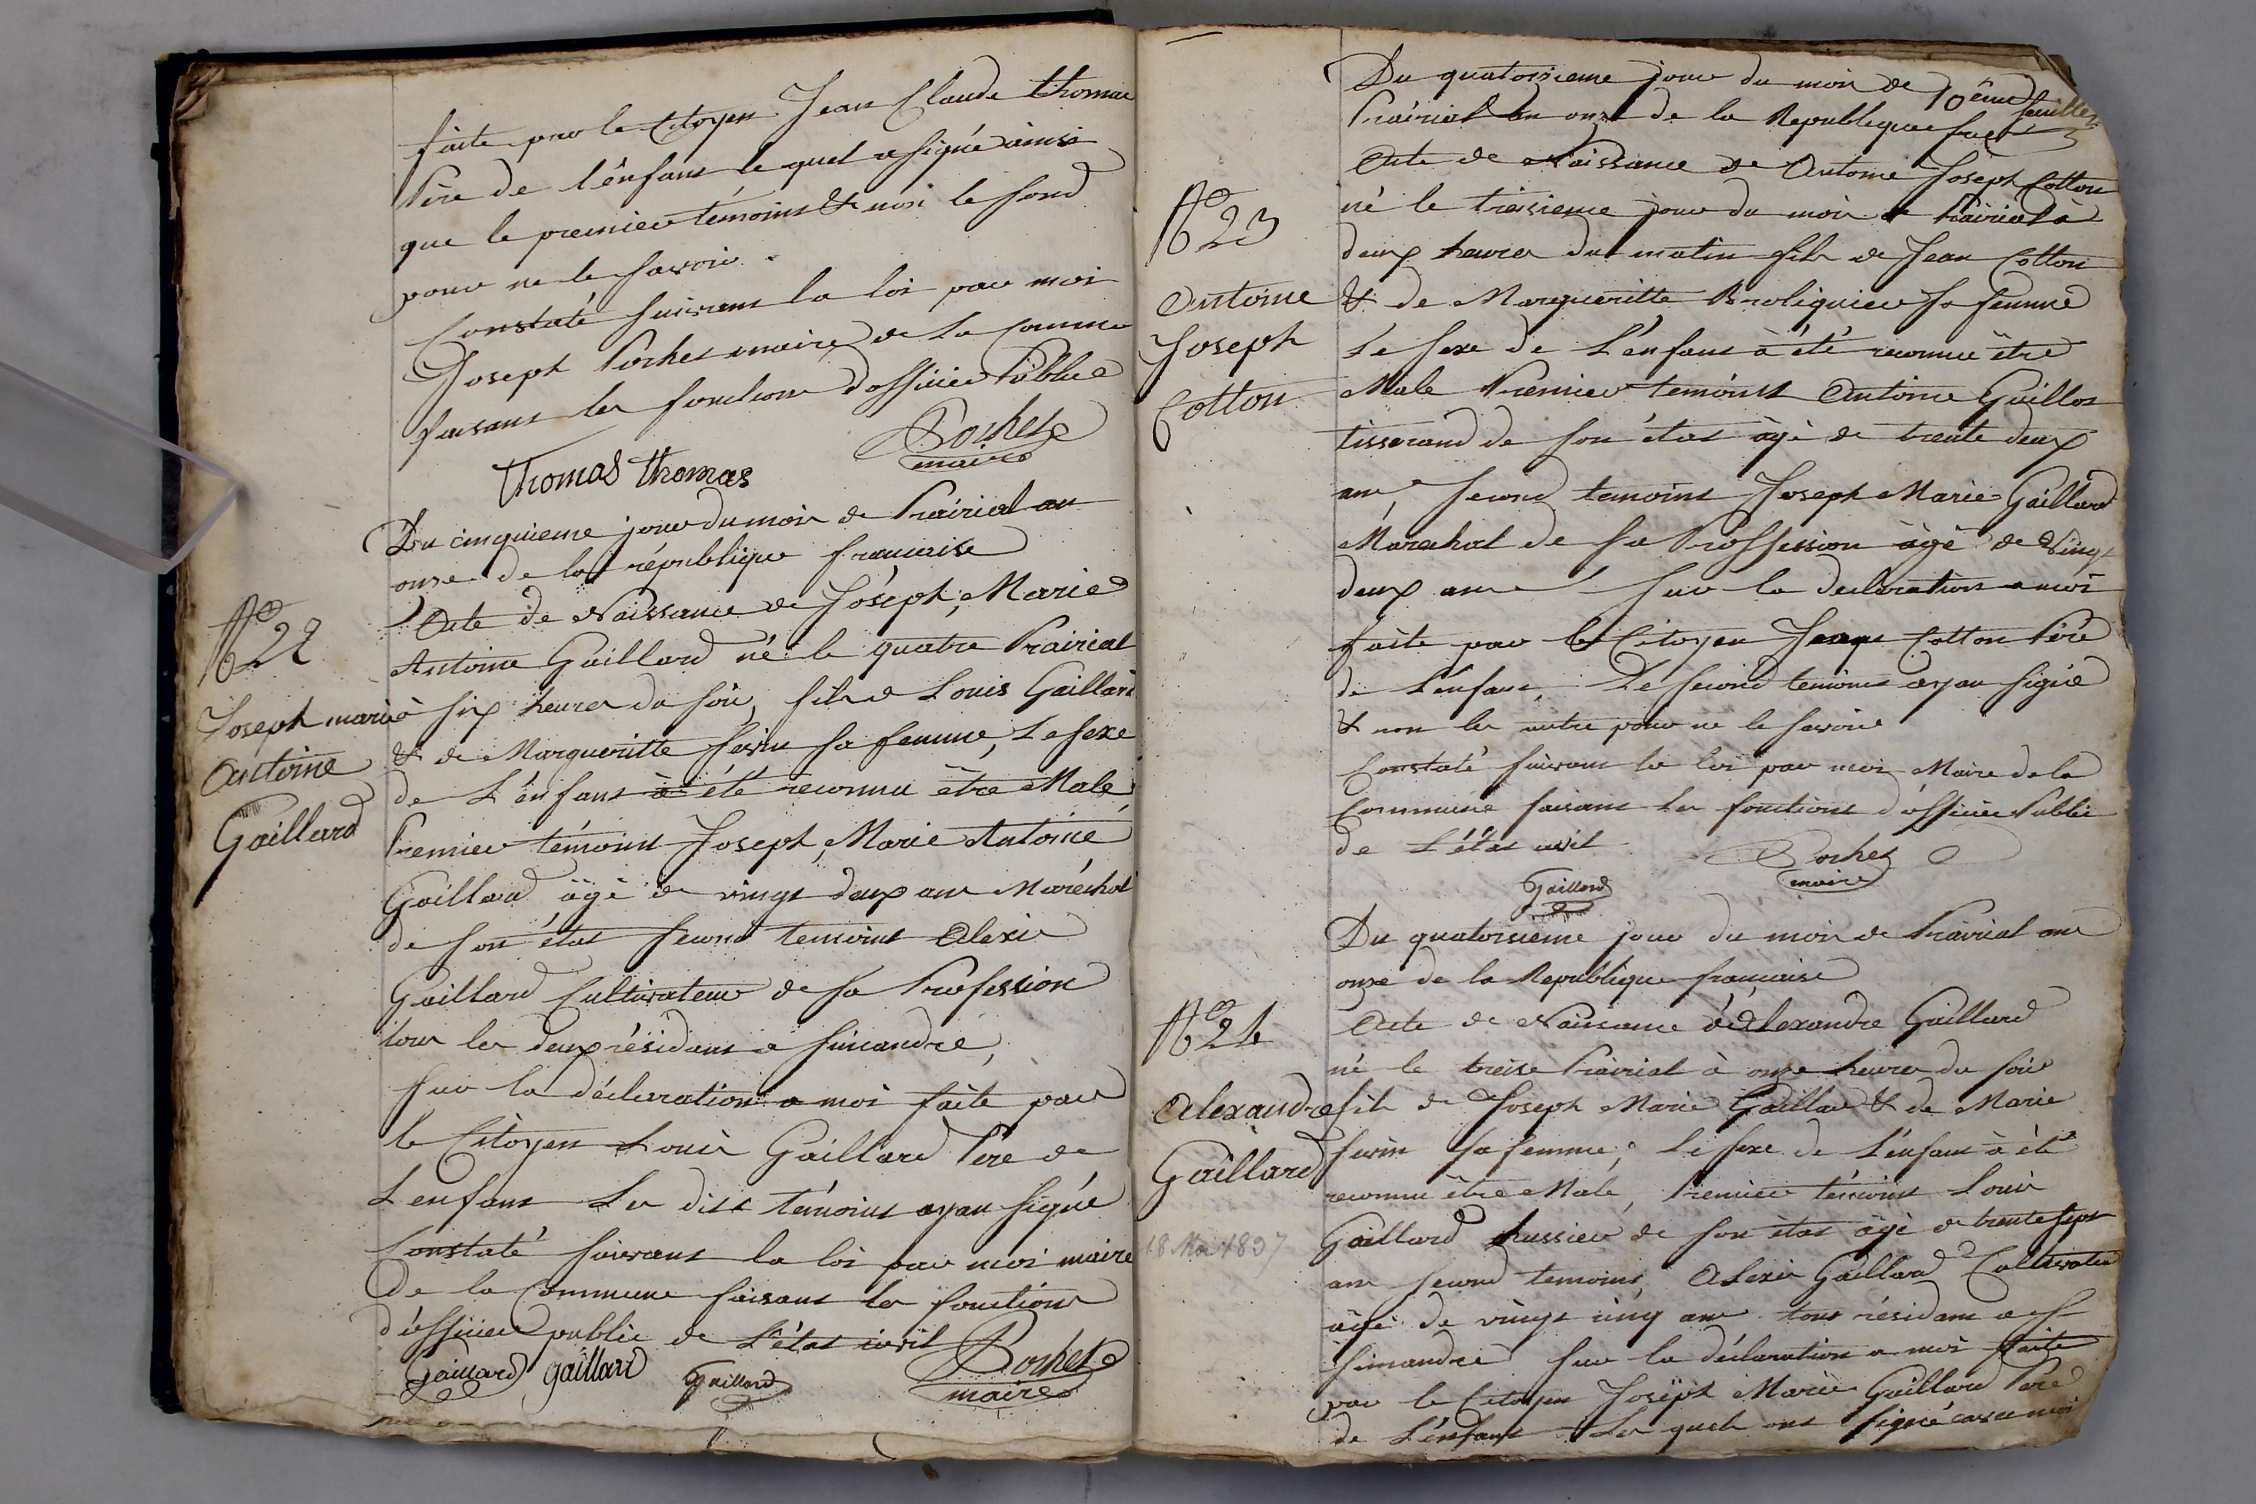 faite par le Citoyen Jean Claude thomas
Père de l'énfant le quel a signé ainsi
que le premier témoins & non le second
pour ne le savoir.
Constaté suivant la loi par moi
Joseph Pochet maire de la Commune
faisant les fonctions d'officier Public
Pochet
maire
Thomas thomas
Du cinquieme jour du mois de Prairial an
onze de la république francaise
N° 22
Acte de Naissance de Joséph, Marie
Antoine Gaillard né le quatre Prairial
Joseph marie
antoine
Gaillard
à six heures du soir, fils de Louis Gaillard
& de Margueritte sa femme, Le sexe
de L'énfant à été reconnu être Male
Premier témoins Joseph, Marie Antoine
Gaillard âgé de vingt deux ans Maréchal
de son état second temoins Alexis
Gaillard Cultivateur de sa Profession
tous les deux résidant a simandre,
sur la déclaration a moi faite par
le Citoyen Louis Gaillard Père de
L'enfant Les dits témoins ayant signé
Constaté suivant la loi par moi maire
de la Commune faisant les fonctions
d'officier public de L'état civil
Pochet
maire
Gaillard gaillard Gaillard
10ême feuillet
Du quatorsieme jour du mois de
Prairial an onze de la Republique
N° 23
Acte de Naissance de Antoine Joseph Cotton
né le treisieme jour du mois de Prairial à
deux heures du matin fils de Jean Cotton
Antoine
Joseph
Cotton
& de Margueritte sa femme
Le sexe de L'énfant à été reconnu être
Male Premier temoins Antoine Guillot
tisserand de son état âgé de trente deux
ans second temoins Joseph Marie Gaillard
Maréchal de sa Proffession âgé de vingt
deux ans sur la declaration a moi
faite par le Citoyen Jean Cotton Père
de L'énfant, Le second temoins ayant signé
& non les autre pour ne le savoir
Constaté suivant la loi par moi Maire de la
Commune faisant les fonctions d'officier Public
de L'état civil
Pochet
maire
Gaillard
Du quatorsieme jour du mois de Prairial an
onze de la Republique francaise
N° 24
Acte de Naissance d'Alexandre Gaillard
né le treise Prairial à onze heures du soir
Alexandre
Gaillard
fils de Joseph Marie Gaillard & de Marie
sa femme, Le sexe de L'énfant à été
reconnu être Male, Premier témoins Louis
18 Mai 1837
Gaillard hussier de son état âgé de trente sept
ans second temoins, Alexis Gaillard Cultivateur
âgé de vingt cinq ans tous résidant a
simandre sur la déclaration a moi faite
par le Citoyen Joseph Marie Gaillard Père
de L'énfant Les quels ont signé avec moi